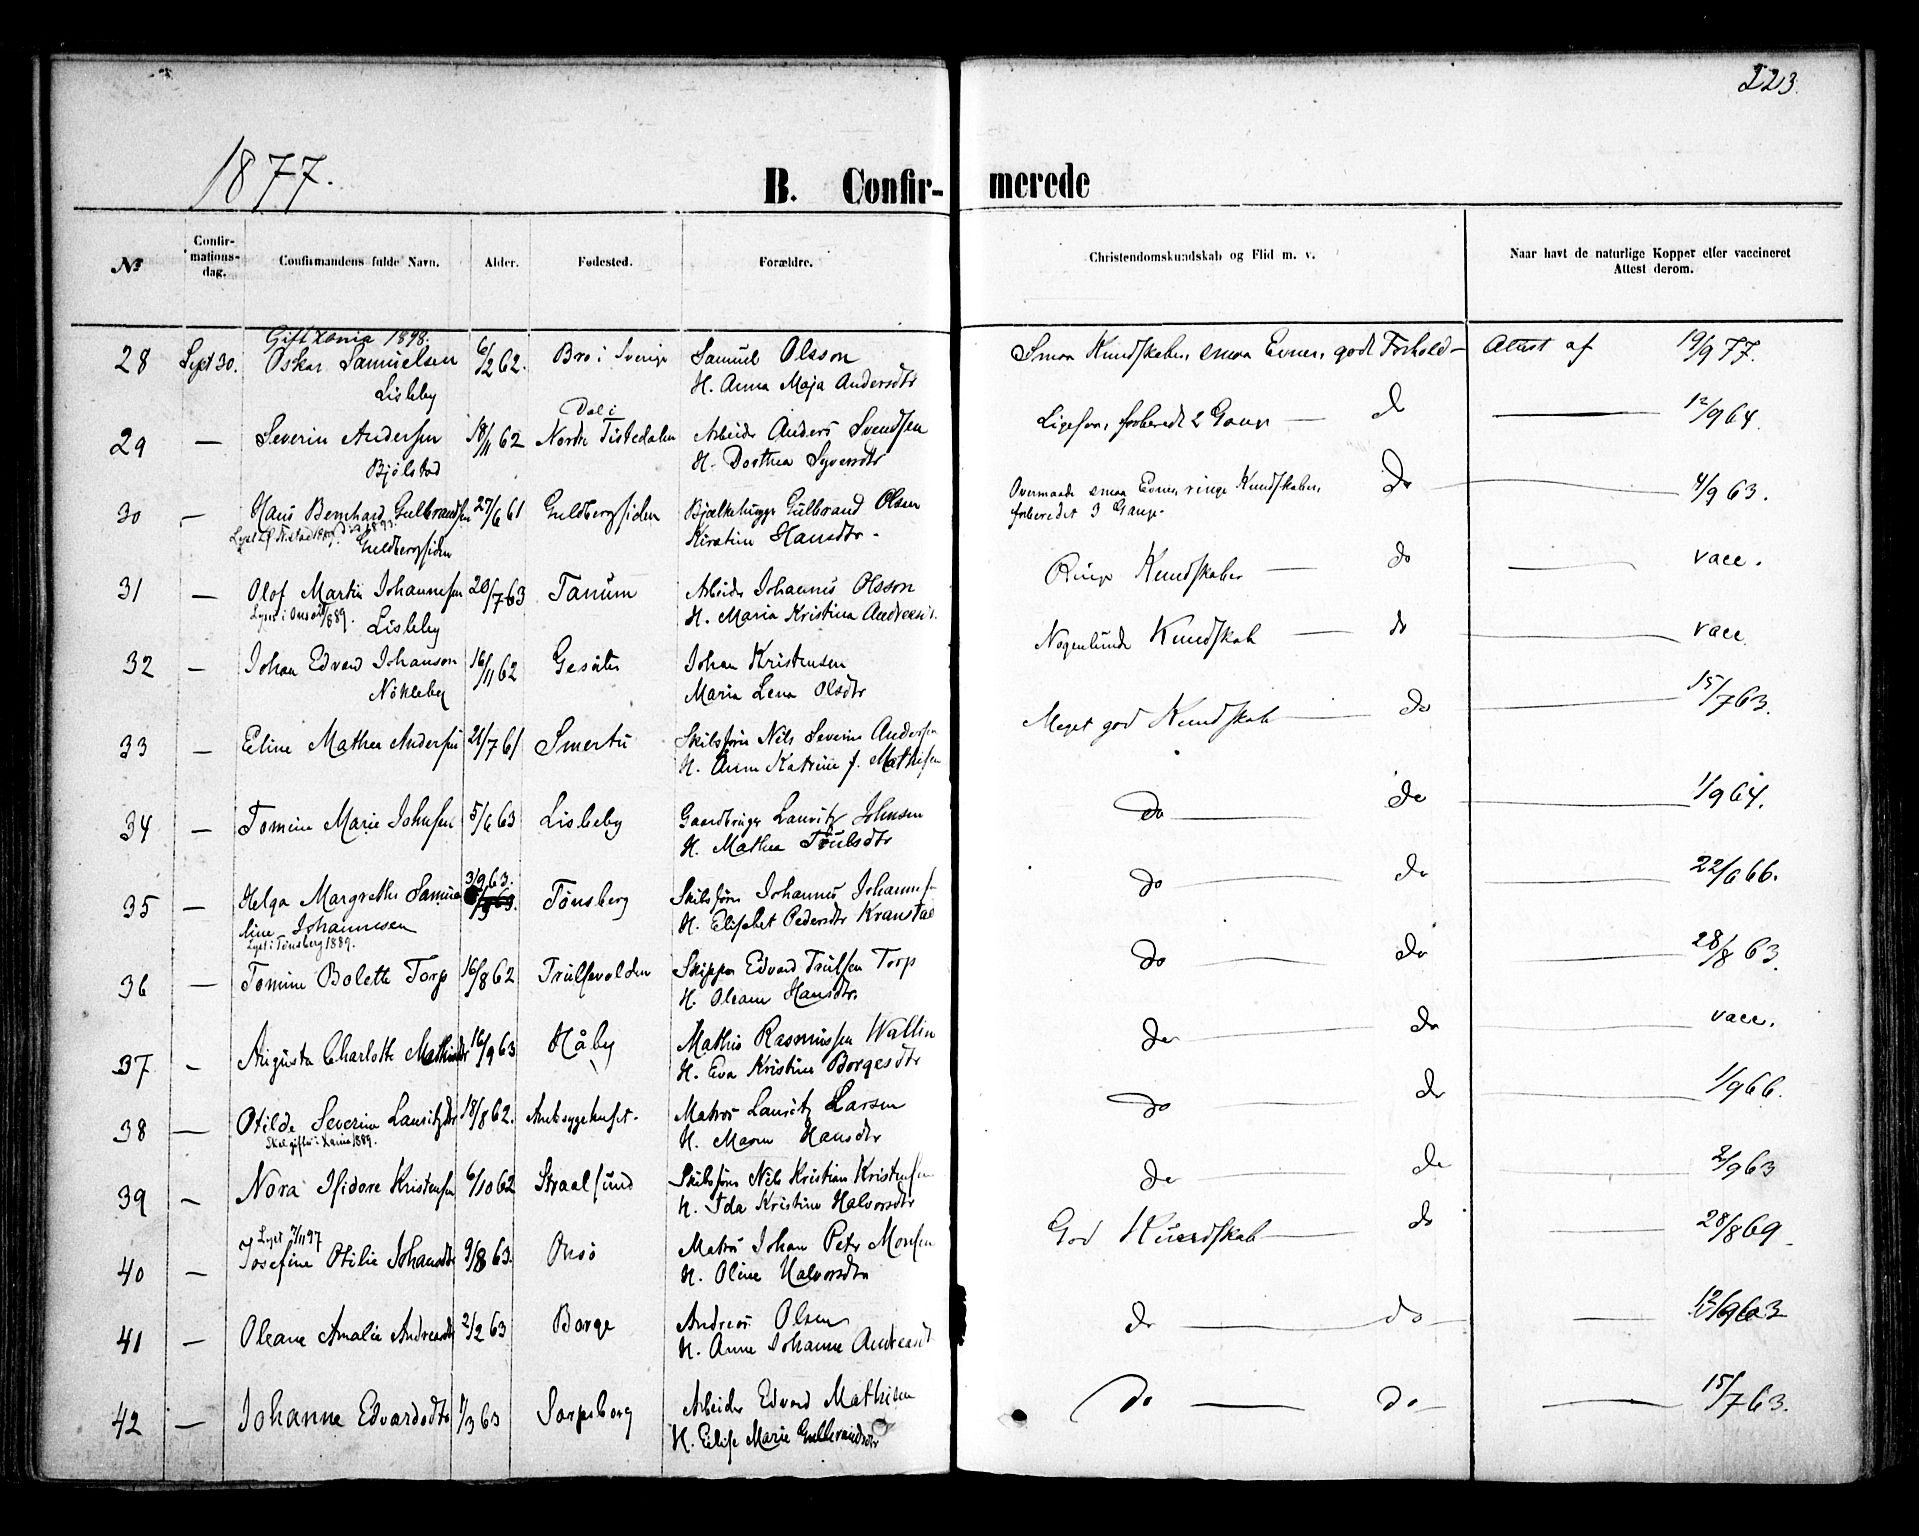 223.
1877.
B. Confirmerede
№
Confir-
mations-
dag.
Confirmandens fulde Navn.
Alder.
Fødested.
Forældre.
Christendomskundskab og Flid m. v.
Naar havt de naturlige Kopper eller vaccineret
Attest derom.
Gift Xania 1898.
28 Sept 30. Oskar Samuelsen 6/2 62. Bro i Sverige Samuel Olsson Smaa Kundskaber, smaa Evner, godt Forhold — Attest af 19/9 77.
Lisleby H. Anna Maja Andersdtr
Dal i
29 — Severin Andersen 18/11 62 Norke Tistedalen Arbeider Anders Svendsen Ligesaa, forberedt 2 Gange — do — 12/9 64.
Bjölstad H. Dorthea Syversdtr
30 — Hans Bernhard Gulbrandsen 27/6 61 Guldbergsiden Bjælkehugger Gulbrand Olsen Overmaade smaa Evner, ringe Kundskaber, Do — 4/9 63.
Guldbergsiden Kirstine Hansdtr. forberedet 3 Gange
31 — Olof Martin Johannesen 20/7 63 Tanum Arbeider Johannes Olsson Ringe Kundskaber — do — vacc.
Lyst i Onsö 1889. Lisleby H. Maria Kristina Andreasd.
32 — Johan Edvard Johanson 16/11 62 Gesäter Johan Kristensen Nogenlunde Kundskab — do — vacc
Nökleby Maria Lena Olsdtr
33 — Eline Mathea Andersen 21/7 61 Smertu Skibsförer Nils Severin Andersen Meget god Kundskab — do — 15/7 63.
H. Anne Katrine f. Mathisen
34 — Tomine Marie Johnsen 5/6 63 Lisleby Gaardbruger Lauritz Johnsen do — do — 1/9 64.
H. Mathea Trulsdtr
3/9 63.
35 — Helga Margrethe Samine Tönsberg Skibsförer Johannes Johannesen do — do — 22/6 66.
line Johannesen H. Elisabet Pedersdtr Kranstad
Lyst i Tönsberg 1889.
36 — Tomine Bolette Torp 16/8 62 Trulsevolden Skipper Edvard Trulsen Torp do — do — 28/8 63.
H. Oleane Hansdtr.
37 — Augusta Charlotte Mathisdtr 16/9 63 Håby Mathis Rasmussen Wallin do — do — vacc.
H. Eva Kristine Borgesdtr
38 — Otilde Severine Lauritzdtr 18/8 62. Amtssygehuset. Matros Lauritz Larsen do — do — 1/9 66.
Skal giftes i Xania 1889. H. Maren Hansdtr
39 — Nora Isidore Kristensen 6/10 62 Straalsund Skibsförer Nils Kristian Kristensen do — do — 2/9 63
H. Ida Kristine Halvorsdtr
Lyst 7/11 97
40 — Josefine Otilie Johansdtr 9/8 63. Onsö Matros Johan Peter Monsen God Kundskab — do — 28/8 69
H. Oline Halvorsdtr
41 — Oleane Amalie Andreasdtr 2/2 63 Borge Andreas Olsen do — do — 12/9 63
H. Anne Johanne Andreasd
42 — Johanne Edvardsdtr 1/3 63 Sarpsborg Arbeider Edvard Mathisen do — do — 15/7 63.
H. Elise Marie Gulbrandsdtr